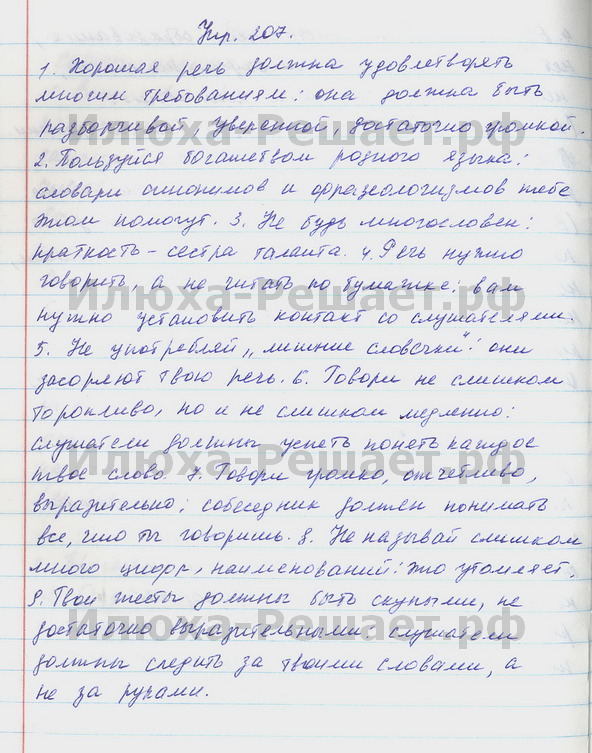 Упр. 207.
1. Хорошая речь должна удовлетворять
многим требованиям: она должна быть
разборчивой, уверенной, достаточно громкой.
2. Пользуйся богатством родного языка:
словари синонимов и фразеологизмов тебе
этом помогут. 3. Не будь многословен:
краткость - сестра таланта. 4. Речь нужно
говорить, а не читать по бумажке: вам
Илюха-Решает.рф
нужно установить контакт со слушателями.
5. Не употребляй „лишние словечки": они
засоряют твою речь. 6. Говори не слишком
торопливо, но и не слишком медленно:
слушатели должны успеть понеть каждое
Илюха-Решает.рф
твое слово. 7. Говори громко, отчетливо,
выразительно: собеседник должен понимать
все, что ты говоришь. 8. Не называй слишком
много цифр, наименований: это утомляет.
9. Твои жесты должны быть скупыми, но
Илюха-Решает.рф
достаточно выразительными: слушатели
должны следить за твоими словами, а
не за руками.